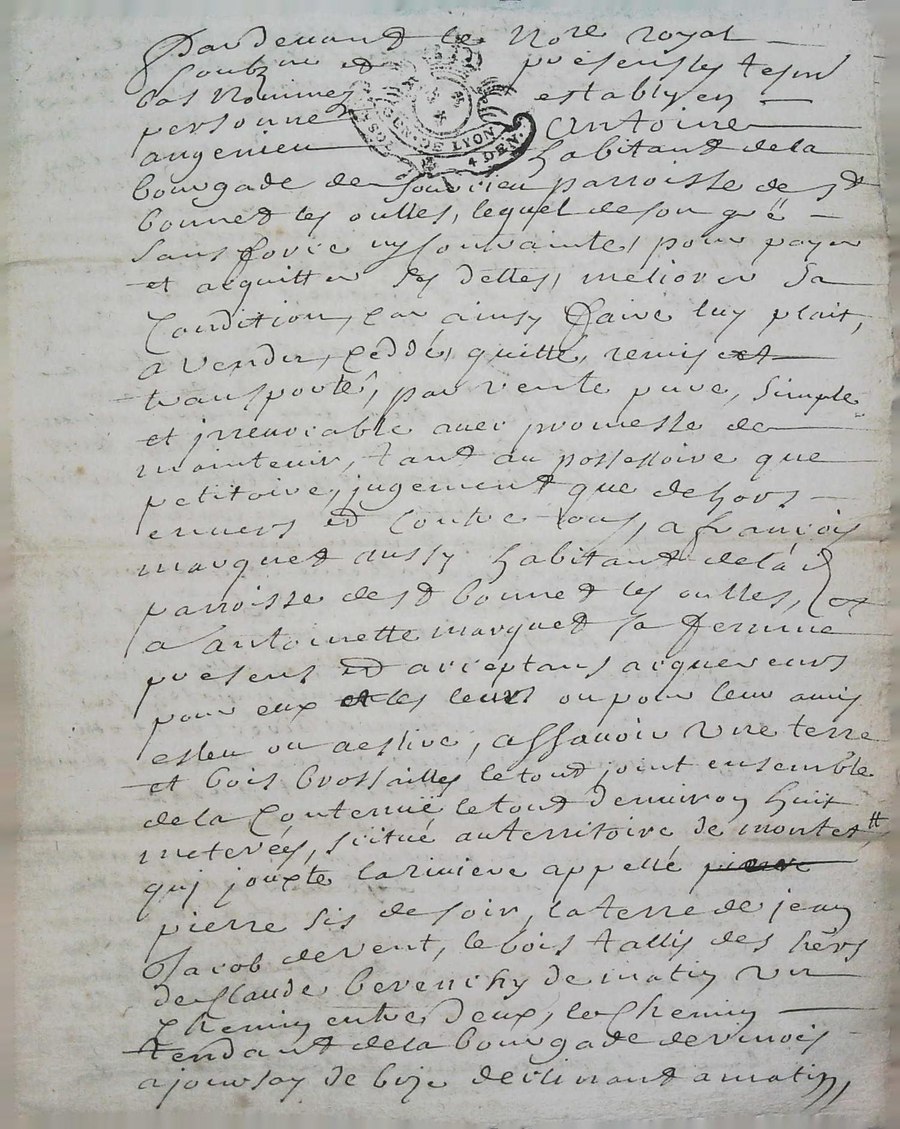 Pardevant le No.re royal
soubz.né et présents les tesm.
bas nommez estably en
personne Antoine
angenieu habitant de la
bourgade de parroisse de S.t
bonnet les oulles, lequel de son gré
sans force ny contrainte, pour payer
et acquitter ses dettes, meliorer sa
Condition, car ainsy faire luy plait,
a vendu, ceddé, quitté, remis et
transporté, par vente pure, simple
et jrreuocable auec promesse de
maintenir, tant au possessoire que
petitoire, jugement que dehors
enuers et contre tous, a françois
marquet aussy habitant de la d.
parroisse de S.t bonnet les oulles, et
a antoinette marquet sa femme
présens et acceptans acquereurs
pour eux et les leurs ou pour leur amis
esleu ou a eslire, assauoir une terre
et bois brossailles le tout joint ensemble
de la Contenue le tout denuiron huit
meterées, scitué au territoire de
qui jouxte la riuiere appellé
pierre sis de soir, la terre de jean
Jacob de vent, le bois tallis des hérs
de Claude de matin un
Chemin entre deux, le Chemin
tendant de la bourgade de
a de bize declinant a matin,
GEN. DE LYON
4 DEN.